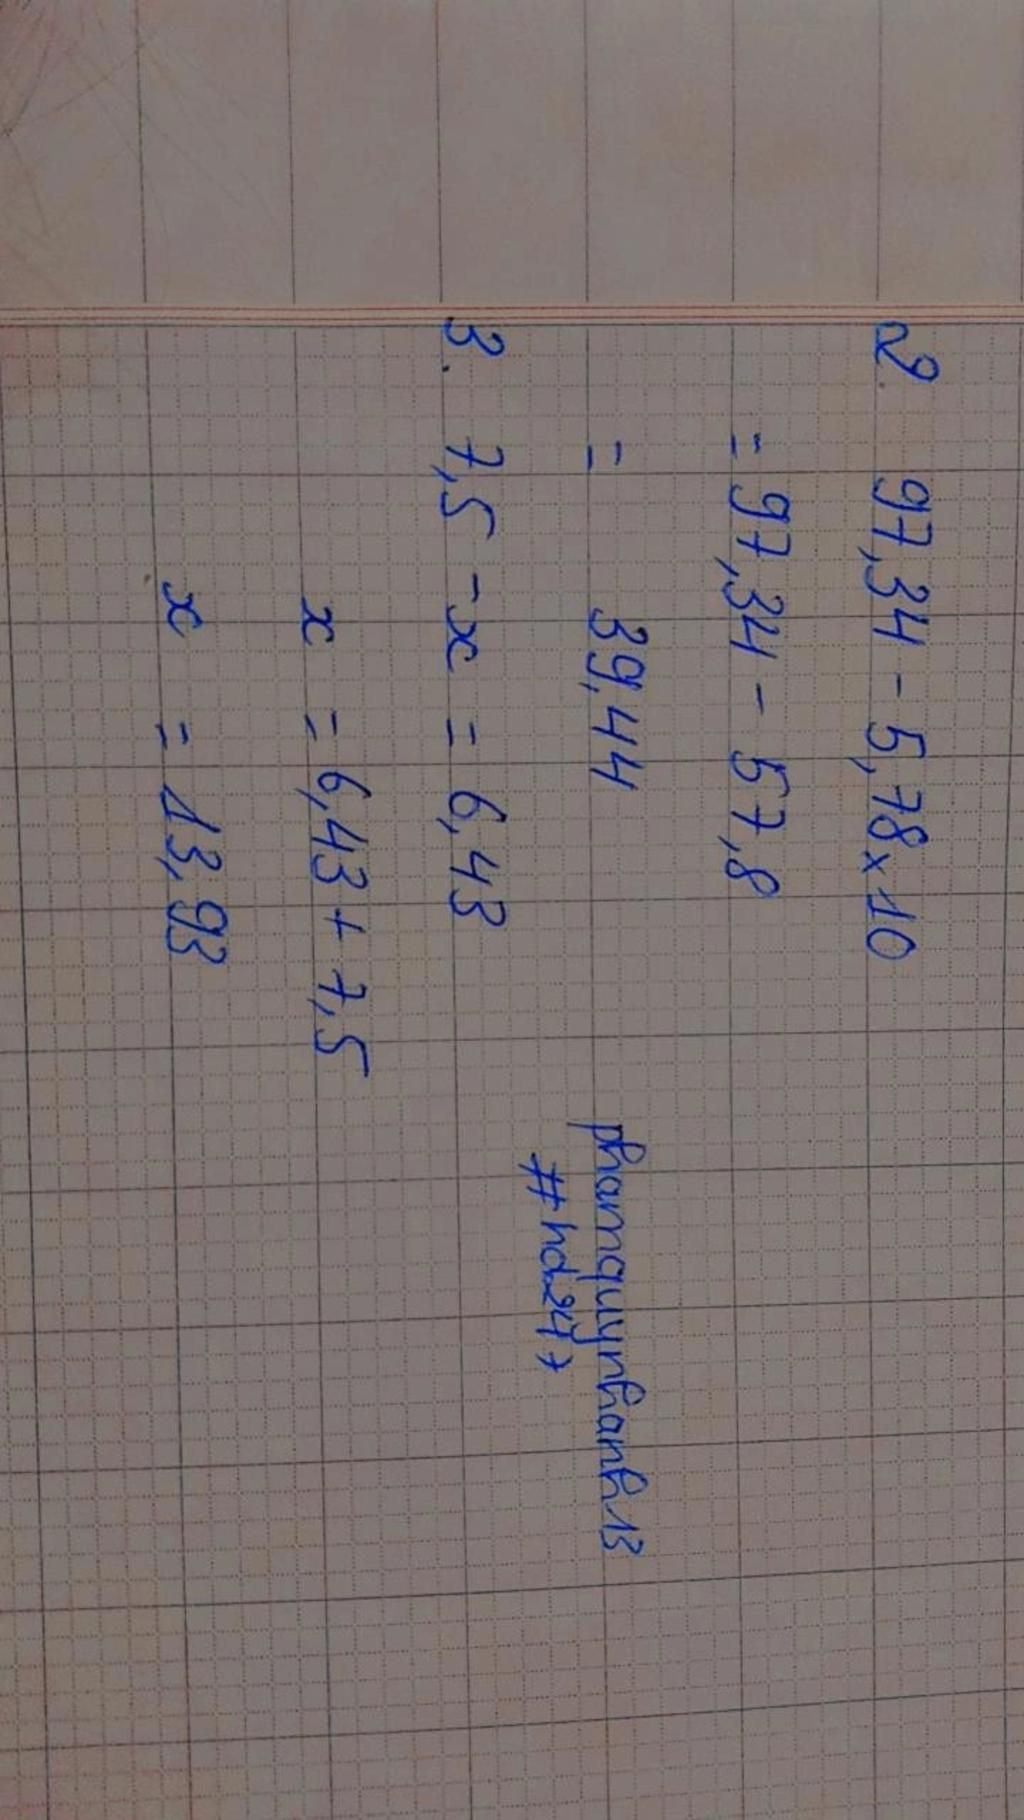 2. 97,34 - 5,78 x 10
= 97,34 - 57,8
= 39,44
phamquynhanh13
#hd247
3. 7,5 - x = 6,43
x = 6,43 + 7,5
x = 13,93